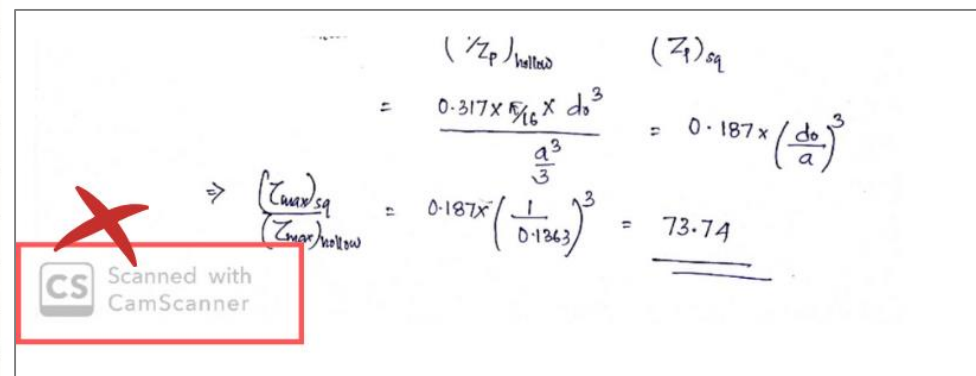 (1/Zp)hollow (Zp)sq
= 0.317 x π/16 x do^3 / a^3/3 = 0.187 x (do/a)^3
⇒ (τmax)sq / (τmax)hollow = 0.187 x (1/0.1363)^3 = 73.74
CS Scanned with
CamScanner